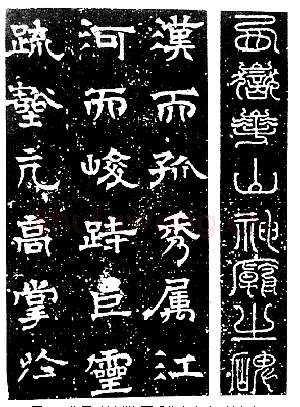 西嶽華山神廟之碑
漢而孤秀属江
河而峻跱巨靈
疏鑿亢高掌於